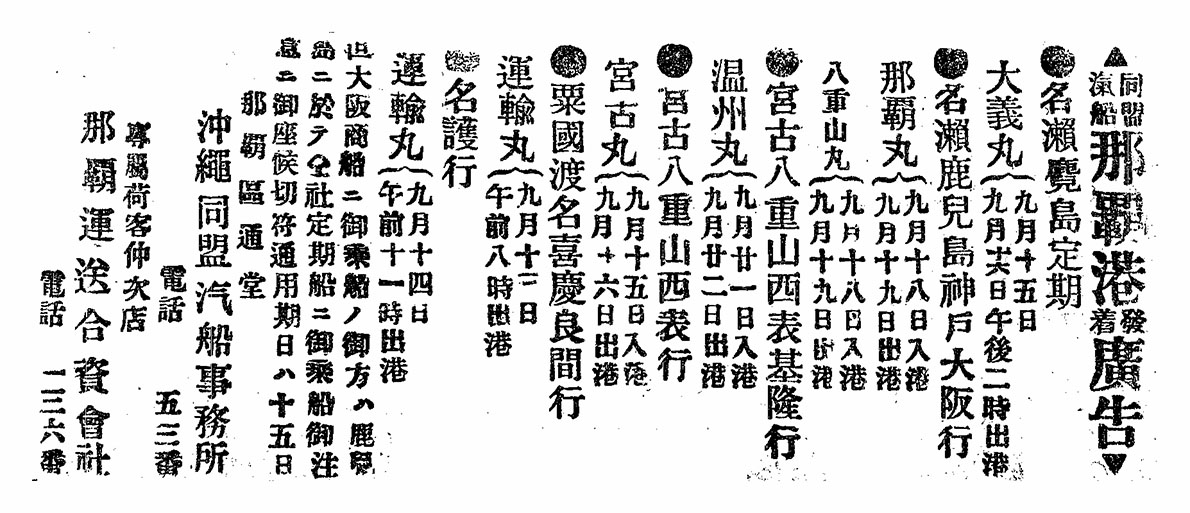 ▲同盟汽船那覇港發着廣告▼
●名瀬鹿島定期
大義丸 九月十五日
九月十六日午後二時出港
●名瀬鹿兒島神戸大阪行
那覇丸 九月十八日入港
九月十九日出港
八重山丸 九月十八日入港
九月十九日出港
●宮古八重山西表基隆行
温州丸 九月廿一日入港
九月廿二日出港
●宮古八重山西表行
宮古丸 九月十五日入港
九月十六日出港
●粟國渡名喜慶良間行
運輸丸 九月十三日
午前八時出港
●名護行
運輸丸 九月十四日
午前十一時出港
但大阪商船ニ御乘船ノ御方ハ鹿兒
島ニ於テ仝社定期船ニ御乘船御注
意ニ御座候切符通用期日ハ十五日
那覇區通堂
沖繩同盟汽船事務所
電話 五三番
專屬荷客仲次店
那覇運送合資會社
電話 一三六番